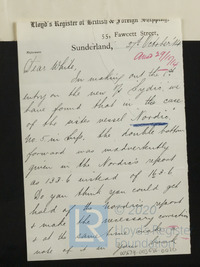 Lloyd's Register of British & Foreign Shipping,
53, Fawcett Street,
Sunderland, 29th October
Ansd 29/10/14
Dear White,
In making out the 1st
entry on the new S/S Lydie, we
have found that in the case
of the sister vessel Nordic,
No 5 in Ship, the double bottom
forward was inadvertently
given in the Nordic's report
as 133.6 instead of 162.6
Do you think you could get
hold of the Nordic's report
& make the necessary correction
© 2020
Lloyd's Register
Foundation